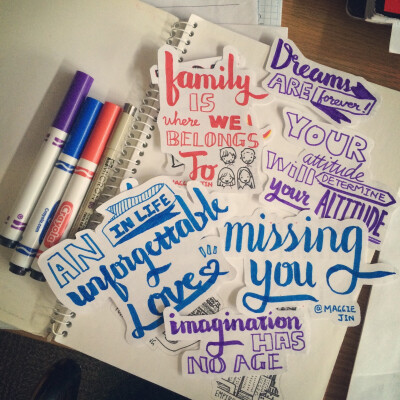 family
IS
where WE
BELONGS
To
MAGGIE JIN
Dreams
ARE forever!
YOUR
attitude
Will DETERMINE
your ALTITUDE
IN LIFE
AN
unforgettable
Love
missing
you
@MAGGIE
JIN
imagination
HAS
NO AGE
Crayola